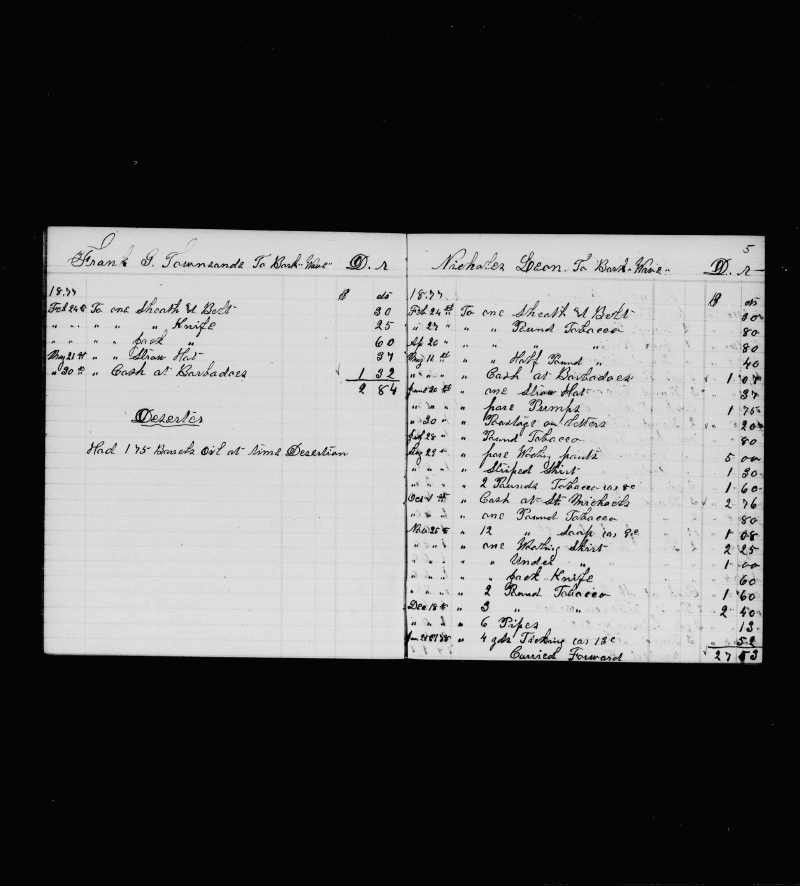 Frank G. Townsends To Bark "Wave" D. r
1877 $ cts
Feb 24th To one Sheath & Belt 30
" " " " " Knife 25
" " " " Jack " 60
May 21st " " Straw Hat 37
" 30th " Cash at Barbadoes √ 1 32
2 84
Deserter
Had 175 Barrels Oil at time Desertion
5
Nicholas Leon. To Bark "Wave" D. r
1877 $ cts
Feb 24th To one Sheath & Belt 30
" 27 " " Pound Tobacco 80
Ap 20 " " " " 80
May 12th " " Half Pound " 40
" " " " Cash at Barbadoes √ 1 07
June 20th " one Straw Hat 37
" " " " pare Pumps 1 75
" 30 " " Poastage on Letters 20
July 28 " " Pound Tobacco 80
Aug 25 " " pare Wooling pants 5 00
" " " " Striped Shirt 1 30
" " " " 2 Pounds Tobacco 1 60
Oct 1st " Cash at St. Michaels √ 2 76
" " " " one Pound Tobacco 80
Nov 25th " 12 " Soap as 9c 1 08
" " " " one Wooling Shirt 2 25
" " " " " Under " 1 00
" " " " " Jack Knife 60
" " " " 2 Pound Tobacco 1 60
Dec 18th " 3 " " 2 40
" " " " 6 Pipes 13
" 4 yds Ticking as 13c 52
Carried Forward √ 27 53